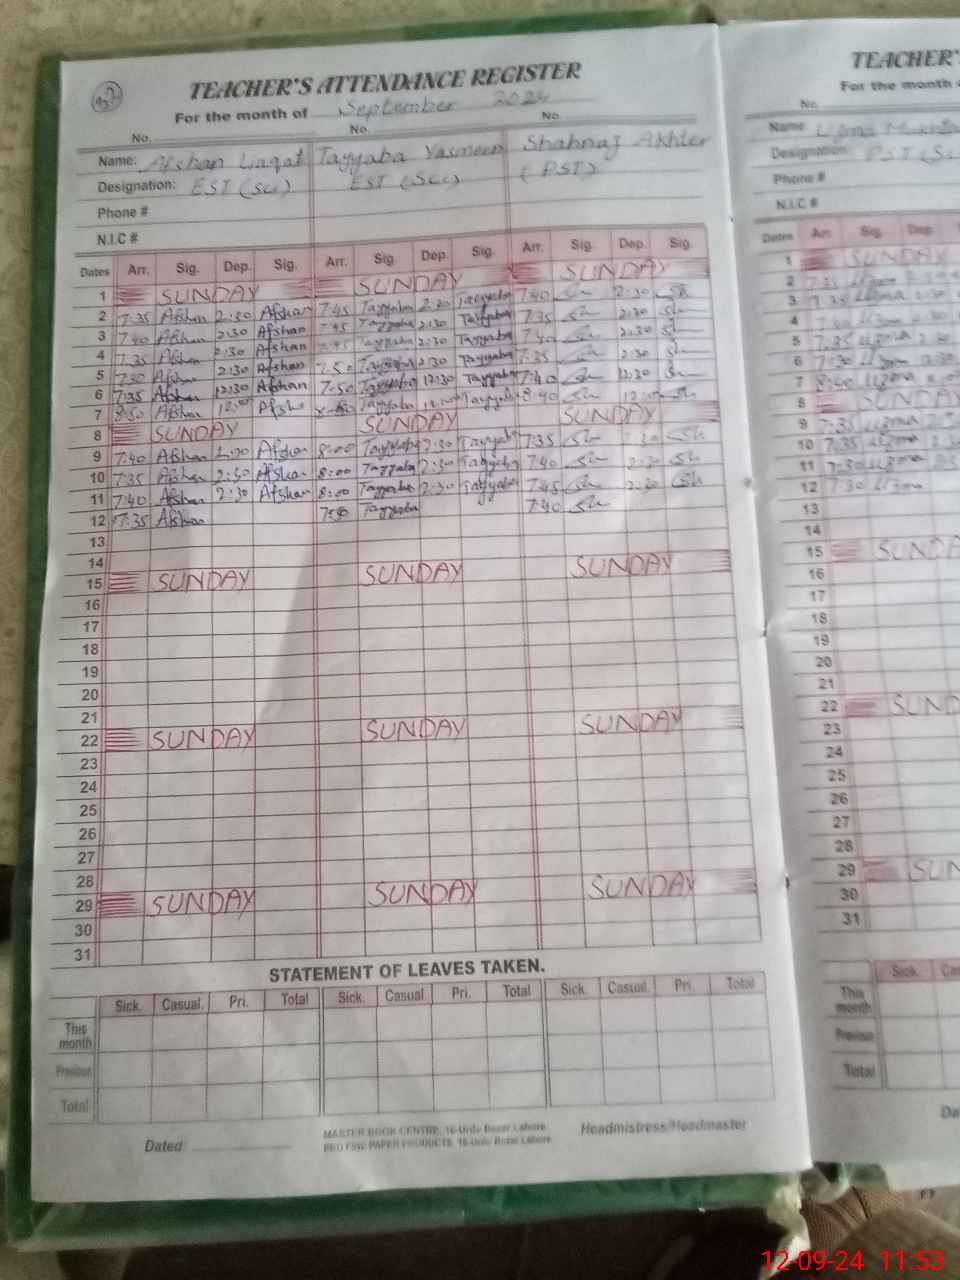 TEACHER'S ATTENDANCE REGISTER
For the month of September 2024
No. No. No.
Name: Afshan Liaqat Tayyaba Yasmeen Shahnaz Akhter
Designation: EST (Sci) EST (Sci) (PST)
Phone #
N.I.C #
Dates Arr. Sig. Dep. Sig. Arr. Sig. Dep. Sig. Arr. Sig. Dep. Sig.
1 SUNDAY SUNDAY SUNDAY
2 7:35 Afshan 2:30 Afshan 7:45 Tayyaba 2:30 Tayyaba 7:40 Sh 2:30 Sh
3 7:40 Afshan 2:30 Afshan 7:45 Tayyaba 2:30 Tayyaba 7:35 Sh 2:30 Sh
4 7:35 Afshan 2:30 Afshan 7:45 Tayyaba 2:30 Tayyaba 7:40 Sh 2:30 Sh
5 7:30 Afshan 2:30 Afshan 7:50 Tayyaba 2:30 Tayyaba 7:35 Sh 2:30 Sh
6 7:35 Afshan 12:30 Afshan 7:50 Tayyaba 12:30 Tayyaba 7:40 Sh 12:30 Sh
7 8:50 Afshan 12:00 Afshan Tayyaba 12:00 Tayyaba 8:40 Sh 12:00 Sh
8 SUNDAY SUNDAY SUNDAY
9 7:40 Afshan 2:30 Afshan 8:00 Tayyaba 2:30 Tayyaba 7:35 Sh 2:30 Sh
10 7:35 Afshan 2:30 Afshan 8:00 Tayyaba 2:30 Tayyaba 7:40 Sh 2:30 Sh
11 7:40 Afshan 2:30 Afshan 8:00 Tayyaba 2:30 Tayyaba 7:45 Sh 2:30 Sh
12 7:35 Afshan 7:50 Tayyaba 7:40 Sh
13
14
15 SUNDAY SUNDAY SUNDAY
16
17
18
19
20
21
22 SUNDAY SUNDAY SUNDAY
23
24
25
26
27
28
29 SUNDAY SUNDAY SUNDAY
30
31
STATEMENT OF LEAVES TAKEN.
Sick. Casual. Pri. Total Sick. Casual. Pri. Total Sick. Casual. Pri. Total
This month
Previous
Total
Dated:
MASTER BOOK CENTRE, 16-Urdu Bazar Lahore.
PRO FINE PAPER PRODUCTS. 16-Urdu Bazar Lahore.
Headmistress/Headmaster
TEACHER'
For the month
No.
Name:
Designation: PST
Phone #
N.I.C #
Dates Arr. Sig. Dep.
1 SUNDAY
2 7:35 Uzma
3 7:35 Uzma
4
5 7:35 Uzma
6 7:30 Uzma
7 8:40 Uzma
8 SUNDAY
9 7:35 Uzma
10 7:35 Uzma
11 7:30 Uzma
12 7:30 Uzma
13
14
15 SUNDA
16
17
18
19
20
21
22 SUND
23
24
25
26
27
28
29 SUN
30
31
Sick. Cas
This month
Previous
Total
Da
12-09-24 11:53